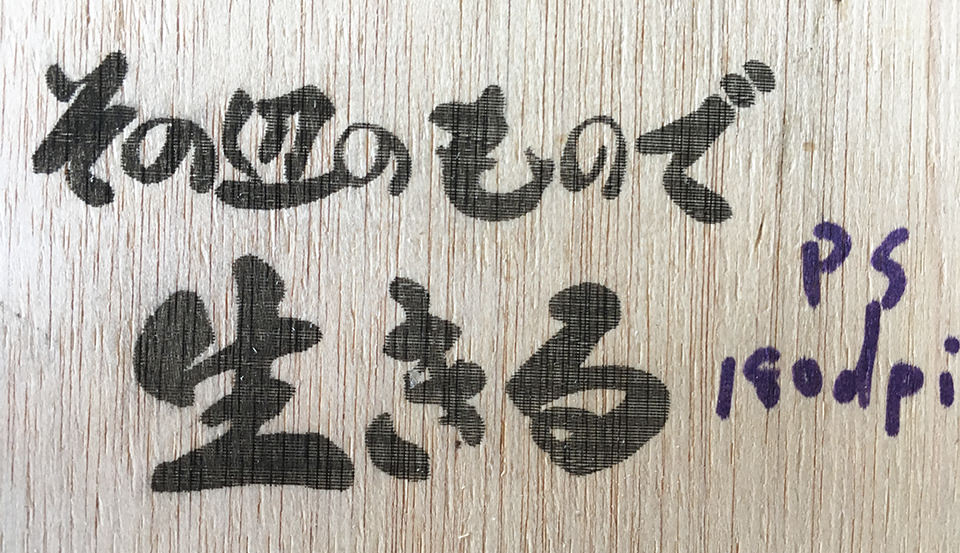 その辺のもので
生きる
PS
180dpi